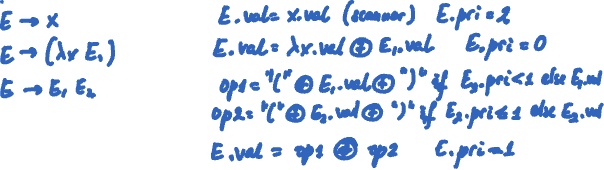 E → x   E.val = x.val (scanner)   E.pri = 2
E → (λx E₁)   E.val = λx.val ⊕ E₁.val   E.pri = 0
E → E₁ E₂   op1 = "(" ⊕ E₁.val ⊕ ")" if E₁.pri < 1 else E₁.val
op2 = "(" ⊕ E₂.val ⊕ ")" if E₂.pri ≤ 1 else E₂.val
E.val = op1 ⊕ op2   E.pri = 1